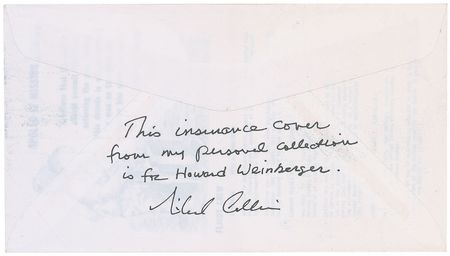 This insurance cover
from my personal collection
is for Howard Weinberger.
Michael Collins